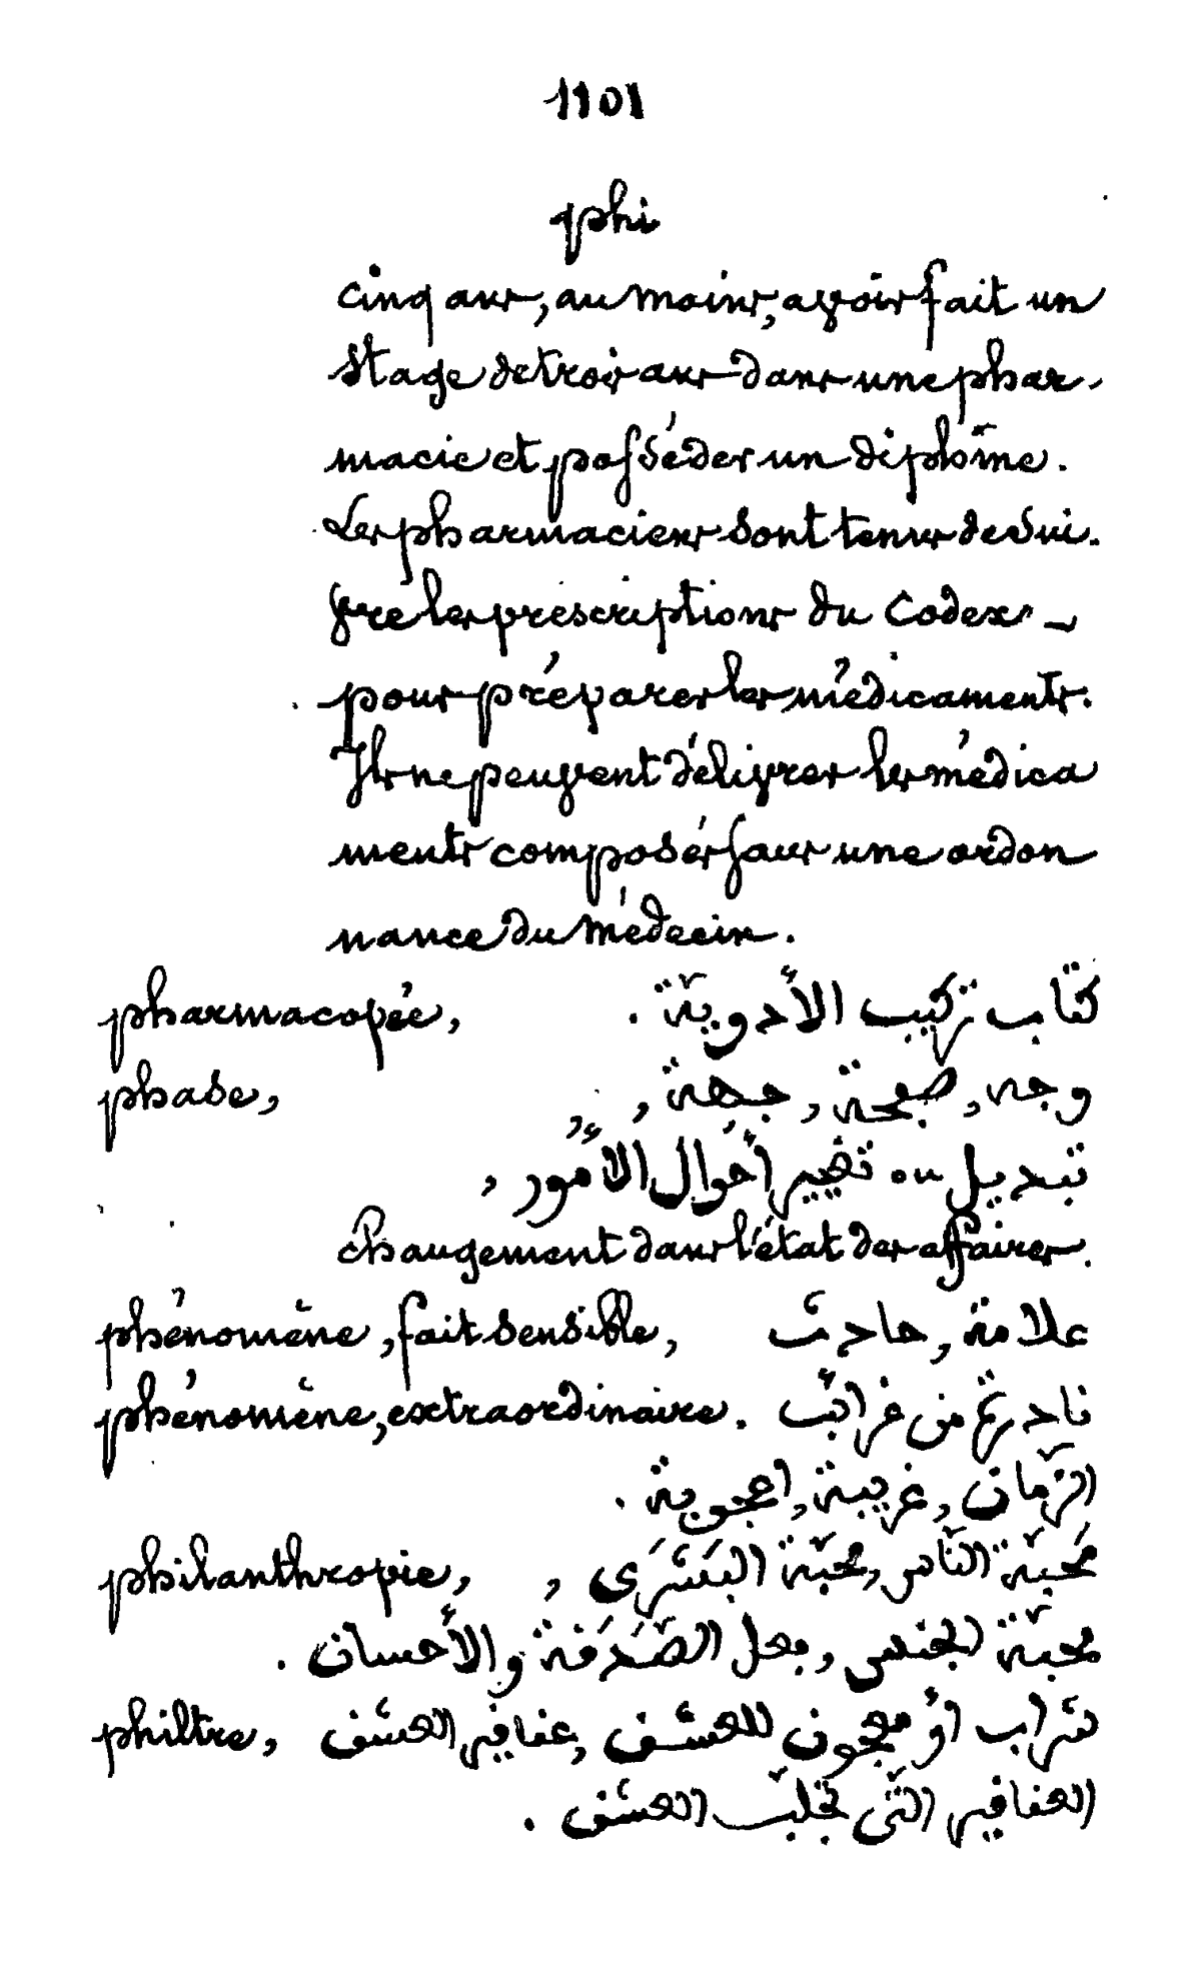 1101
phi
cinq ans, au moins, avoir fait un
stage de trois ans dans une phar-
macie et posséder un diplôme.
Les pharmaciens sont tenus de sui-
vre les prescriptions du Codex -
pour préparer les médicaments.
Ils ne peuvent délivrer les médica
ments composés saus une ordon
nance du médecin.
pharmacopée, كتاب تركيب الأدويّة .
phase, وجه, صفحة, جهة,
تبديل ou تغيير أحوال الأمُور ,
changement dans l'état des affaires.
phénomène, fait sensible, علامة, حادث
phénomène, extraordinaire. نادرة من غرائب
الزّمان, غريبة, اعجوبة .
philanthropie, مَحبّة النّاس, محبّة البَشَرَى ,
محبّة الجنس, بعل الصَّدَقة والأحسان .
philtre, شراب أو معجون للعشق, عقاقير العشق
العقاقير الّتي تجلب العشق .